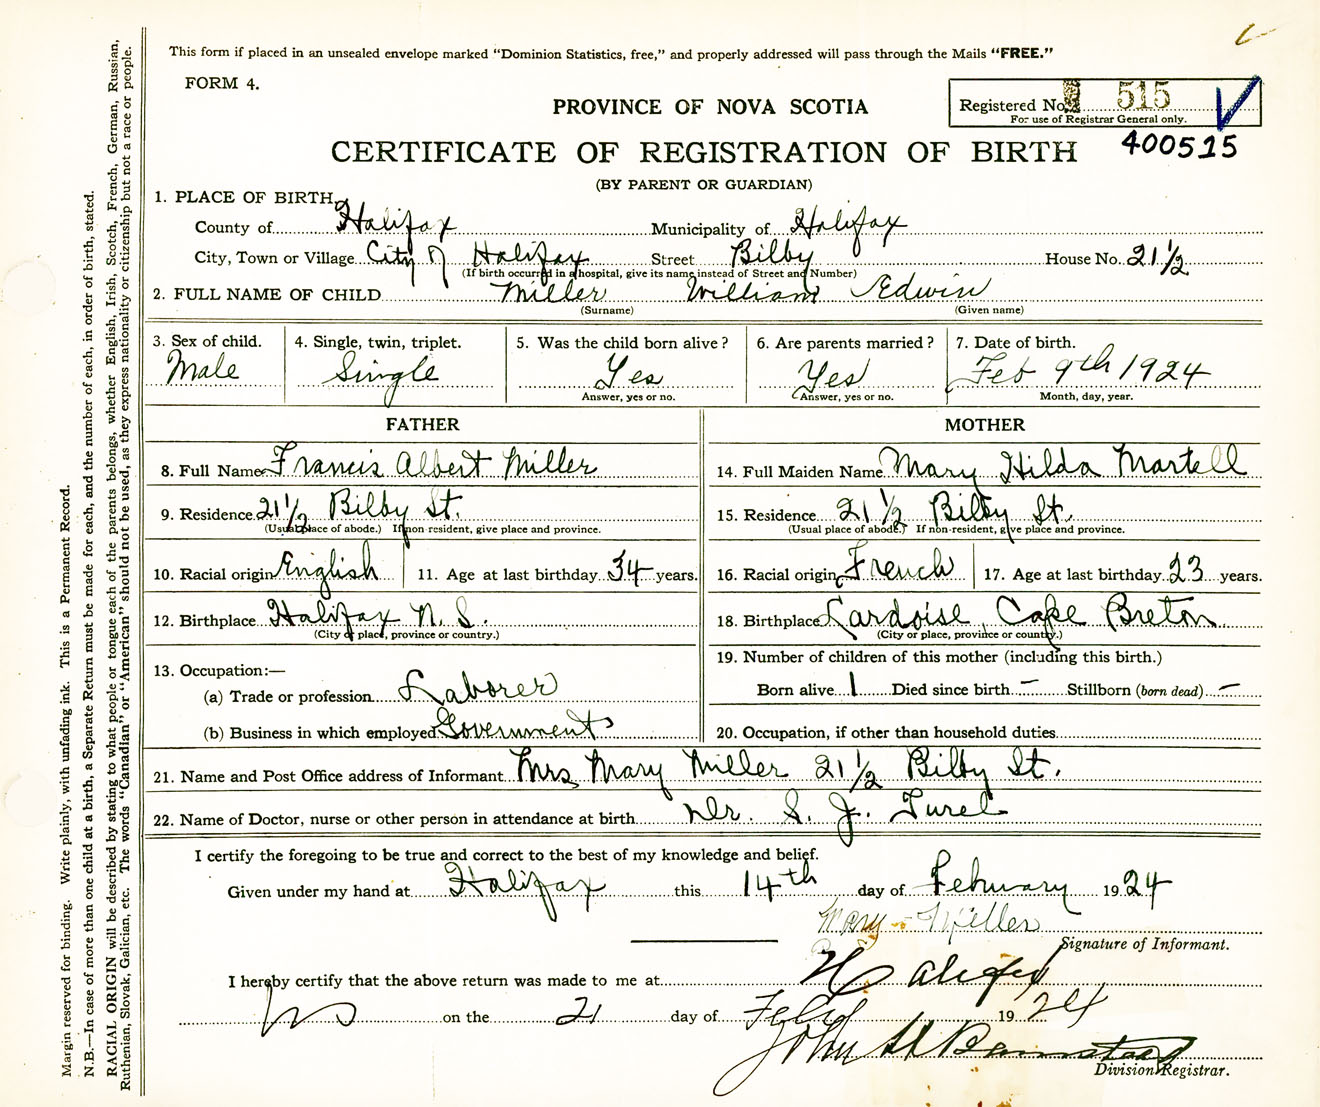 This form if placed in an unsealed envelope marked "Dominion Statistics, free," and properly addressed will pass through the Mails "FREE."
FORM 4.
Registered No. 515
For use of Registrar General only.
400515
PROVINCE OF NOVA SCOTIA
CERTIFICATE OF REGISTRATION OF BIRTH
(BY PARENT OR GUARDIAN)
1. PLACE OF BIRTH
County of Halifax Municipality of Halifax
City, Town or Village City of Halifax Street Bilby House No. 21 1/2
(If birth occurred in a hospital, give its name instead of Street and Number)
2. FULL NAME OF CHILD Miller William Edwin
(Surname) (Given name)
3. Sex of child. 4. Single, twin, triplet. 5. Was the child born alive? 6. Are parents married? 7. Date of birth.
Male Single Yes Yes Feb 9th 1924
Answer, yes or no. Answer, yes or no. Month, day, year.
FATHER MOTHER
8. Full Name Francis Albert Miller 14. Full Maiden Name Mary Hilda Martell
9. Residence 21 1/2 Bilby St. 15. Residence 21 1/2 Bilby St.
(Usual place of abode.) If non-resident, give place and province. (Usual place of abode.) If non-resident, give place and province.
10. Racial origin English 11. Age at last birthday 34 years. 16. Racial origin French 17. Age at last birthday 23 years.
12. Birthplace Halifax N. S. 18. Birthplace Lardoise, Cape Breton
(City or place, province or country.) (City or place, province or country.)
13. Occupation:— 19. Number of children of this mother (including this birth.)
(a) Trade or profession Laborer Born alive 1 Died since birth – Stillborn (born dead) –
(b) Business in which employed Government 20. Occupation, if other than household duties
21. Name and Post Office address of Informant Mrs Mary Miller 21 1/2 Bilby St.
22. Name of Doctor, nurse or other person in attendance at birth Dr. S. J. Turel
I certify the foregoing to be true and correct to the best of my knowledge and belief.
Given under my hand at Halifax this 14th day of February 1924
Mary Miller
Signature of Informant.
I hereby certify that the above return was made to me at Halifax
on the 21 day of Feby 1924
John H Barnstead
Division Registrar.
Margin reserved for binding. Write plainly, with unfading ink. This is a Permanent Record.
N.B.—In case of more than one child at a birth, a Separate Return must be made for each, and the number of each, in order of birth, stated.
RACIAL ORIGIN will be described by stating to what people or tongue each of the parents belongs, whether English, Irish, Scotch, French, German, Russian,
Ruthenian, Slovak, Galician, etc. The words "Canadian" or "American" should not be used, as they express nationality or citizenship but not a race or people.